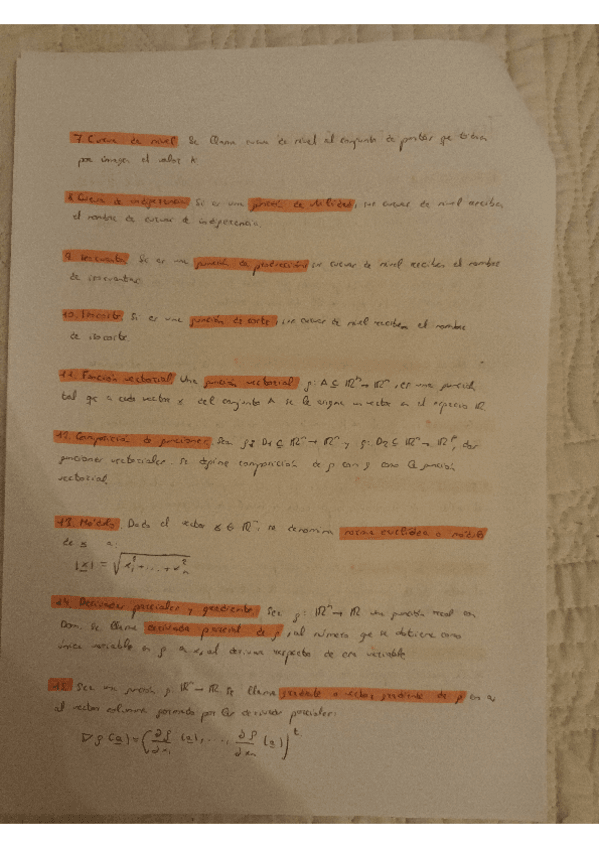 7. Curva de nivel Se llama curva de nivel al conjunto de puntos que tienen
por imagen el valor k
8. Curva de indiferencia Si es una función de utilidad, sus curvas de nivel reciben
el nombre de curvas de indiferencia.
9. Isocuanta Si es una función de producción, sus curvas de nivel reciben el nombre
de isocuantas.
10. Isocoste Si es una función de coste, sus curvas de nivel reciben el nombre
de isocoste.
11. Función vectorial Una función vectorial f: A ⊆ ℝⁿ → ℝᵐ, es una función
tal que a cada vector x del conjunto A se le asigna un vector en el espacio ℝ
12. Composición de funciones. Sea D₁ ⊆ ℝⁿ → ℝᵐ y D₂ ⊆ ℝᵐ → ℝᵖ, dos
funciones vectoriales. Se define composición de f con g como la función
vectorial.
13. Módulo Dado el vector x ∈ ℝⁿ, se denomina norma euclídea o módulo
de x a:
|x| = √(x₁² + ... + xₙ²)
14. Derivadas parciales y gradiente. Sea f: ℝⁿ → ℝ una función real con
Dom. Se llama derivada parcial de f, al número que se obtiene como
única variable en f a, al derivar respecto de esa variable
15. Sea una función f: ℝⁿ → ℝ se llama gradiente o vector gradiente de f en a
al vector columna formado por las derivadas parciales:
∇f(a) = (∂f/∂x₁ (a), ..., ∂f/∂xₙ (a))ᵗ